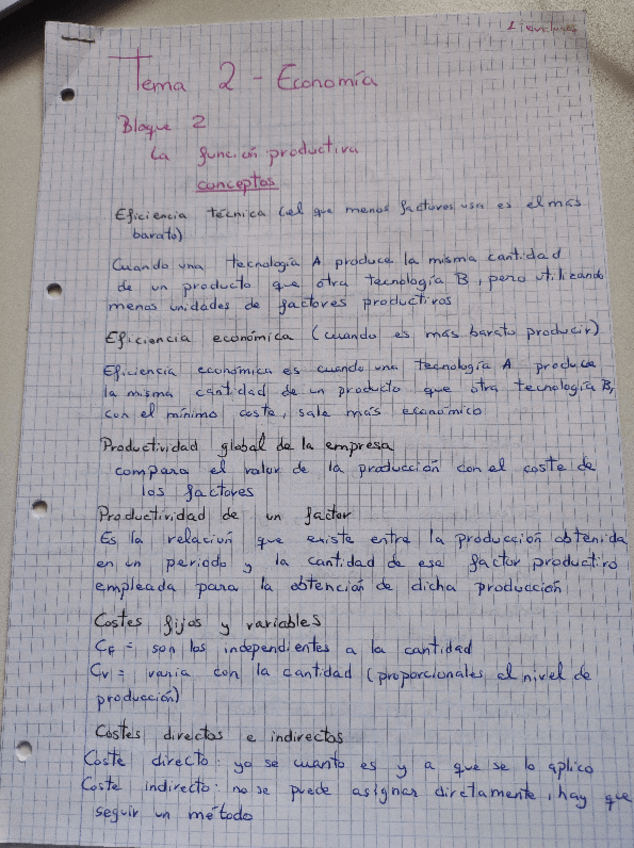 Tema 2 - Economía
Bloque 2
La función productiva
conceptos
Eficiencia técnica (el que menos factores usa es el más
barato)
Cuando una tecnología A produce la misma cantidad
de un producto que otra tecnología B, pero utilizando
menos unidades de factores productivos
Eficiencia económica (cuando es más barato producir)
Eficiencia económica es cuando una tecnología A produce
la misma cantidad de un producto que otra tecnología B,
con el mínimo coste, sale más económico
Productividad global de la empresa
compara el valor de la producción con el coste de
los factores
Productividad de un factor
Es la relación que existe entre la producción obtenida
en un periodo y la cantidad de ese factor productivo
empleada para la obtención de dicha producción
Costes fijos y variables
CF = son los independientes a la cantidad
CV = varia con la cantidad (proporcionales al nivel de
producción)
Costes directos e indirectos
Coste directo: yo se cuanto es y a que se lo aplico
Coste indirecto: no se puede asignar diretamente, hay que
seguir un método